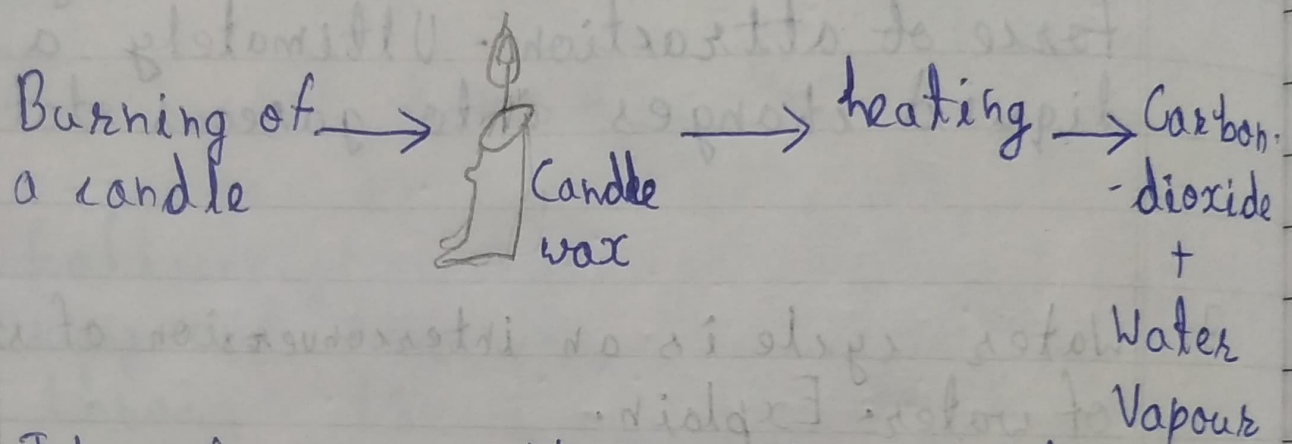 Burning of
a candle
Candle
wax
heating
Carbon-
-dioxide
+
Water
Vapour